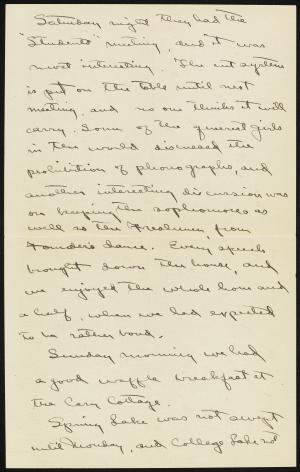 Saturday night they had the
"Students'" meeting, and it was
most interesting. The cut system
is put on the table until next
meeting, and no one thinks it will
carry. Some of the queerest girls
in the world discussed the
prohibition of phonographs, and
another interesting discussion was
on keeping the sophomores as
well as the Freshmen, from
Founder's dance. Every speech
brought down the house, and
we enjoyed the whole hour and
a half, when we had expected
to be rather bored.
Sunday morning we had
a good waffle breakfast at
the Cary Cottage.
Spring Lake was not swept
until Monday, and College Lake not